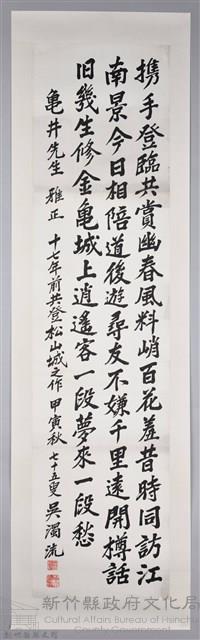 携手登臨共賞幽春風料峭百花羞昔時同訪江
南景今日相陪道後遊尋友不嫌千里遠開樽話
旧幾生修金亀城上逍遥客一段夢來一段愁
亀井先生 雅正 十七年前共登松山城之作 甲寅秋 七十五叟 吳濁流
新竹縣政府文化局
Cultural Affairs Bureau of Hsinchu
County Government